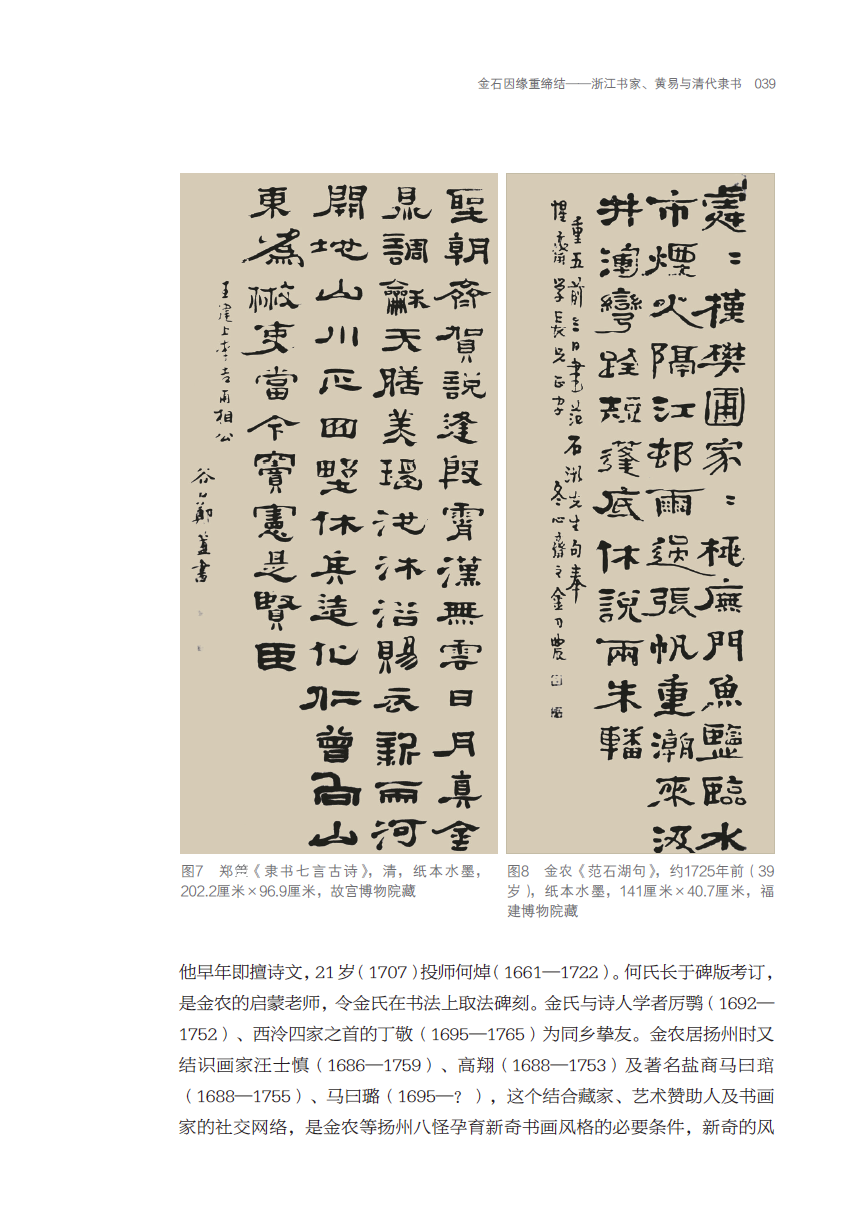 金石因缘重缔结——浙江书家、黄易与清代隶书 039
聖朝齊賀說逢殷霄漢無雲日月真金
鼎調龢天膳美瑶池沐浴賜衣新兩河
開地山川正四野休兵造化仁曾向山
東為散吏當今竇憲是賢臣
王建上李吉甫相公
谷口鄭簠書
處〻槿樊圃家〻桃廡門魚鹽臨水
市煙火隔江邨雨過張帆重潮來汲
井渾彎跧短篷底休說兩朱轓
重五前三日書范石湖先生句奉
惺齋學長兄正字 冬心齋 金 農
图7 郑簠《隶书七言古诗》，清，纸本水墨，
202.2厘米×96.9厘米，故宫博物院藏
图8 金农《范石湖句》，约1725年前（39
岁），纸本水墨，141厘米×40.7厘米，福
建博物院藏
他早年即擅诗文，21岁（1707）投师何焯（1661—1722）。何氏长于碑版考订，
是金农的启蒙老师，令金氏在书法上取法碑刻。金氏与诗人学者厉鹗（1692—
1752）、西泠四家之首的丁敬（1695—1765）为同乡挚友。金农居扬州时又
结识画家汪士慎（1686—1759）、高翔（1688—1753）及著名盐商马曰琯
（1688—1755）、马曰璐（1695—？），这个结合藏家、艺术赞助人及书画
家的社交网络，是金农等扬州八怪孕育新奇书画风格的必要条件，新奇的风